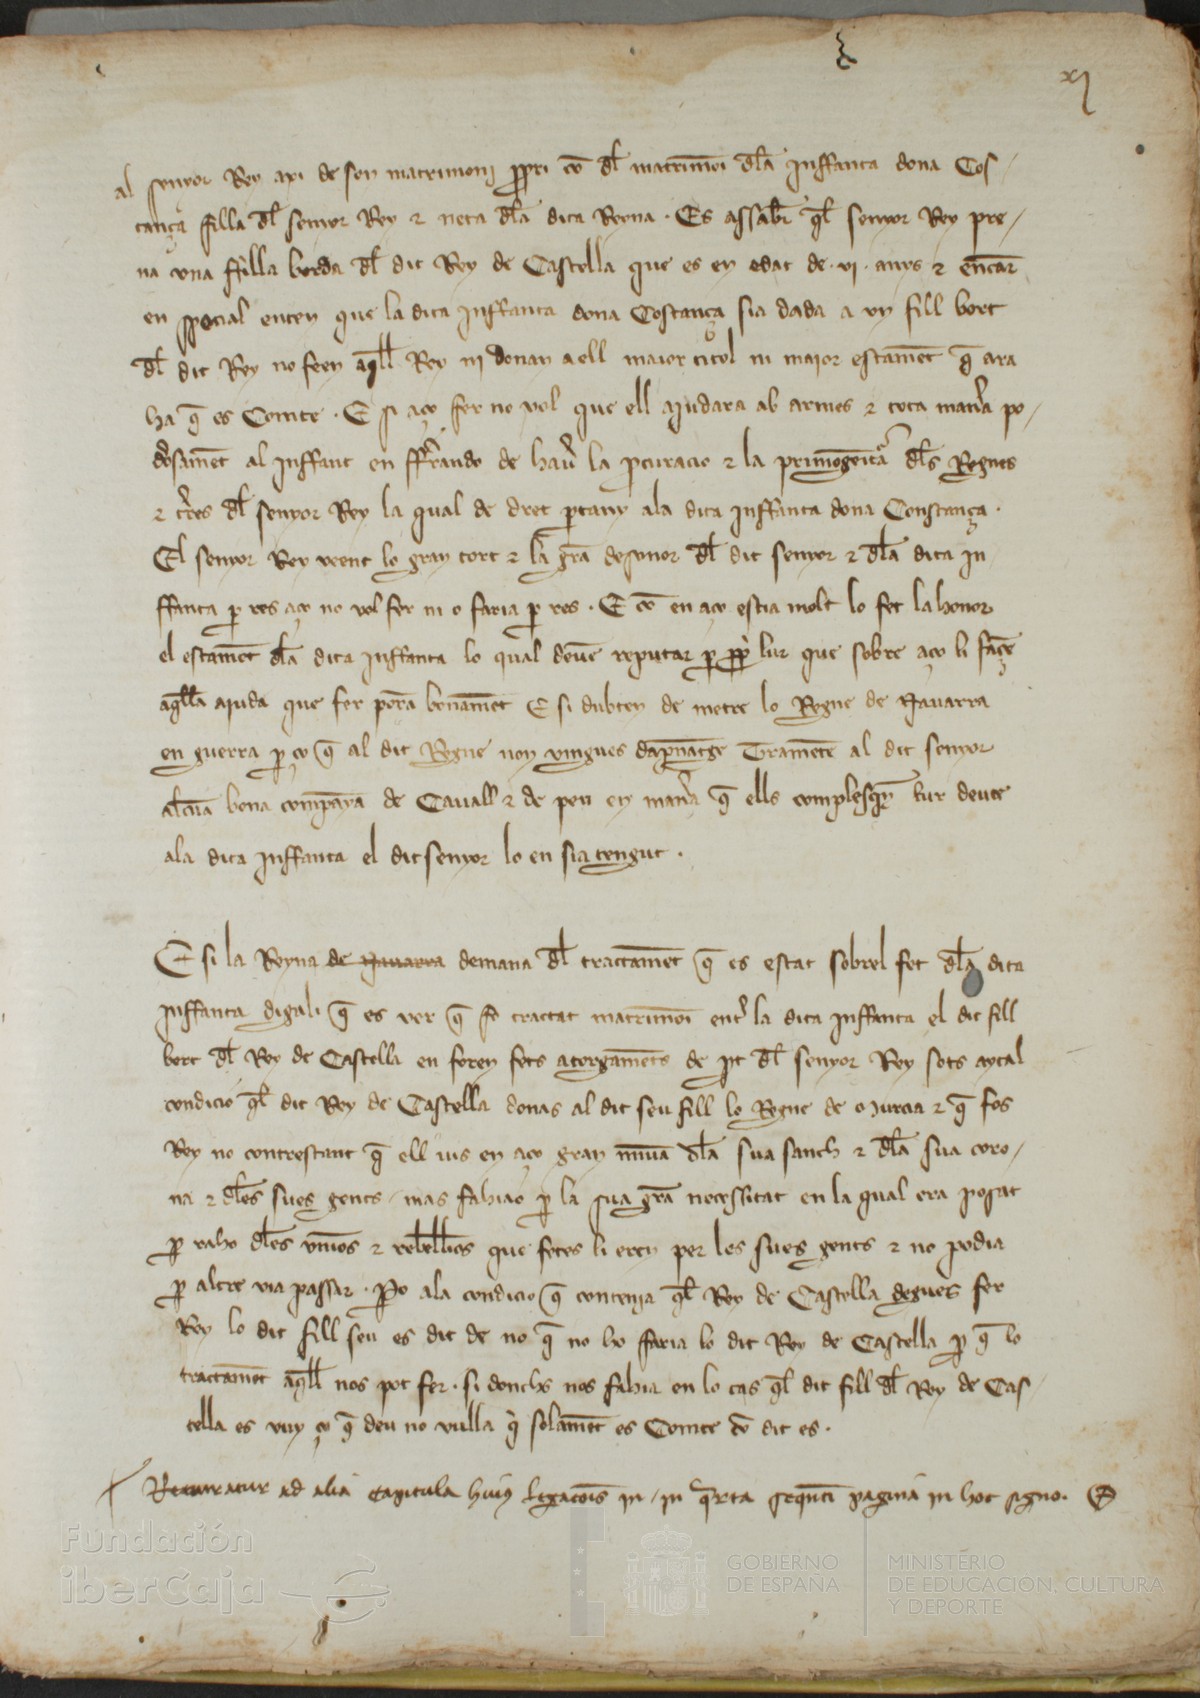 xj
al senyor Rey axi de son matrimonj ppri co dl matrimoi dla Inffanta dona Cos-
tança filla dl senyor Rey & neta dla dita Reyna. Es assabr ql senyor Rey pre-
na una ffilla borda dl dit Rey de Castella que es en edat de .vi. anys & encar
en special enten que la dita Inffanta dona Costança sia dada a un fill bort
dl dit Rey no feen aqll Rey ni donan a ell maior titol ni maior estamet q ara
ha q es Comte. E si aço fer no vol que ell aiudara ab armes & tota mana po-
dosamet al Inffant en ffrando de hav la pcuracio & la primogeita dls Regnes
& tres dl senyor Rey la qual de dret ptany ala dita Inffanta dona Constança.
El senyor Rey veent lo gran tort & la gra desonor dl dit senyor & dla dita In
ffanta p res aço no vol fer ni o faria p res. E co en aço estia molt lo fet la honor
el estamet dla dita Inffanta lo qual deue reputar p pp lur que sobre aço li façe
aqlla aiuda que fer pora bonamet E si dubten de metre lo Regne de Nauarra
en guerra p ço q al dit Regne non vingues dapnatge Tramete al dit senyor
alcua bona companya de Cauall & de peu en mana q ells complesqn lur deute
ala dita Inffanta el dit senyor lo en sia tengut.
E si la Reyna de Nauarra demana dl tractamet q es estat sobrel fet dla dita
Inffanta digali q es ver q fo tractat matrimoi ent la dita Inffanta el dit fill
bort dl Rey de Castella en foren fets atorgamets de pt dl senyor Rey sots aytal
condicio ql dit Rey de Castella donas al dit seu fill lo Regne de Murcia & q fos
Rey no contrestant q ell vis en aço gran minua dla sua sanch & dla sua coro-
na & dles sues gents, mas fahiao p la sua gra necessitat en la qual era posat
p raho dles vnios & rebellios que fetes li eren per les sues gents & no podia
p altre via passar. Po ala condicio q contenia ql Rey de Castella degues fer
Rey lo dit fill seu es dit de no q no ho faria lo dit Rey de Castella p q lo
tractamet aqll nos pot fer. si donchs nos fahia en lo cas ql dit fill dl Rey de Cas-
tella es vuy ço q deu no vulla q solamet es Comte co dit es.
Recuratur ad alia capitula hui legacois in, in qrta sequeti pagina in hoc signo.
Fundación
iberCaja
GOBIERNO
DE ESPAÑA
MINISTERIO
DE EDUCACIÓN, CULTURA
Y DEPORTE